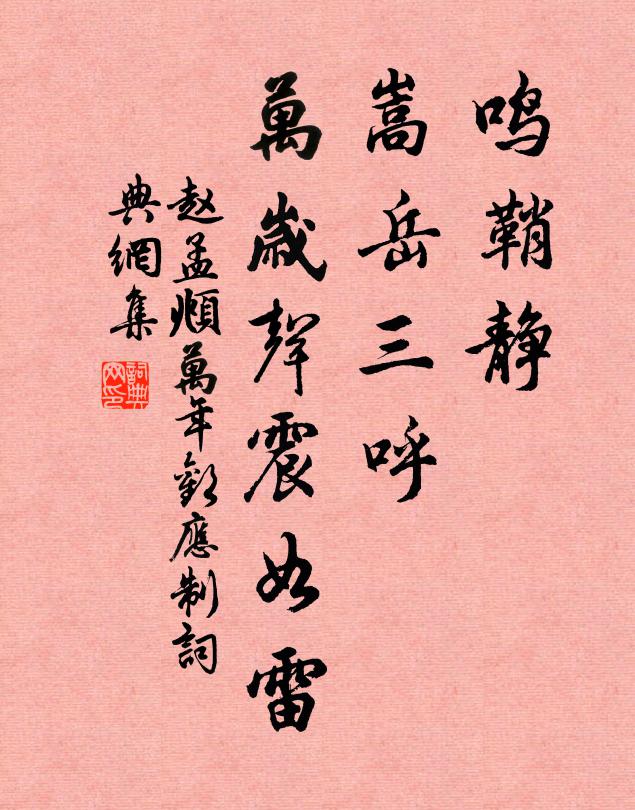 鸣鞘静
嵩岳三呼
萬歲聲震如雷
赵孟頫萬年歡應制詞
典網集
詞典网印